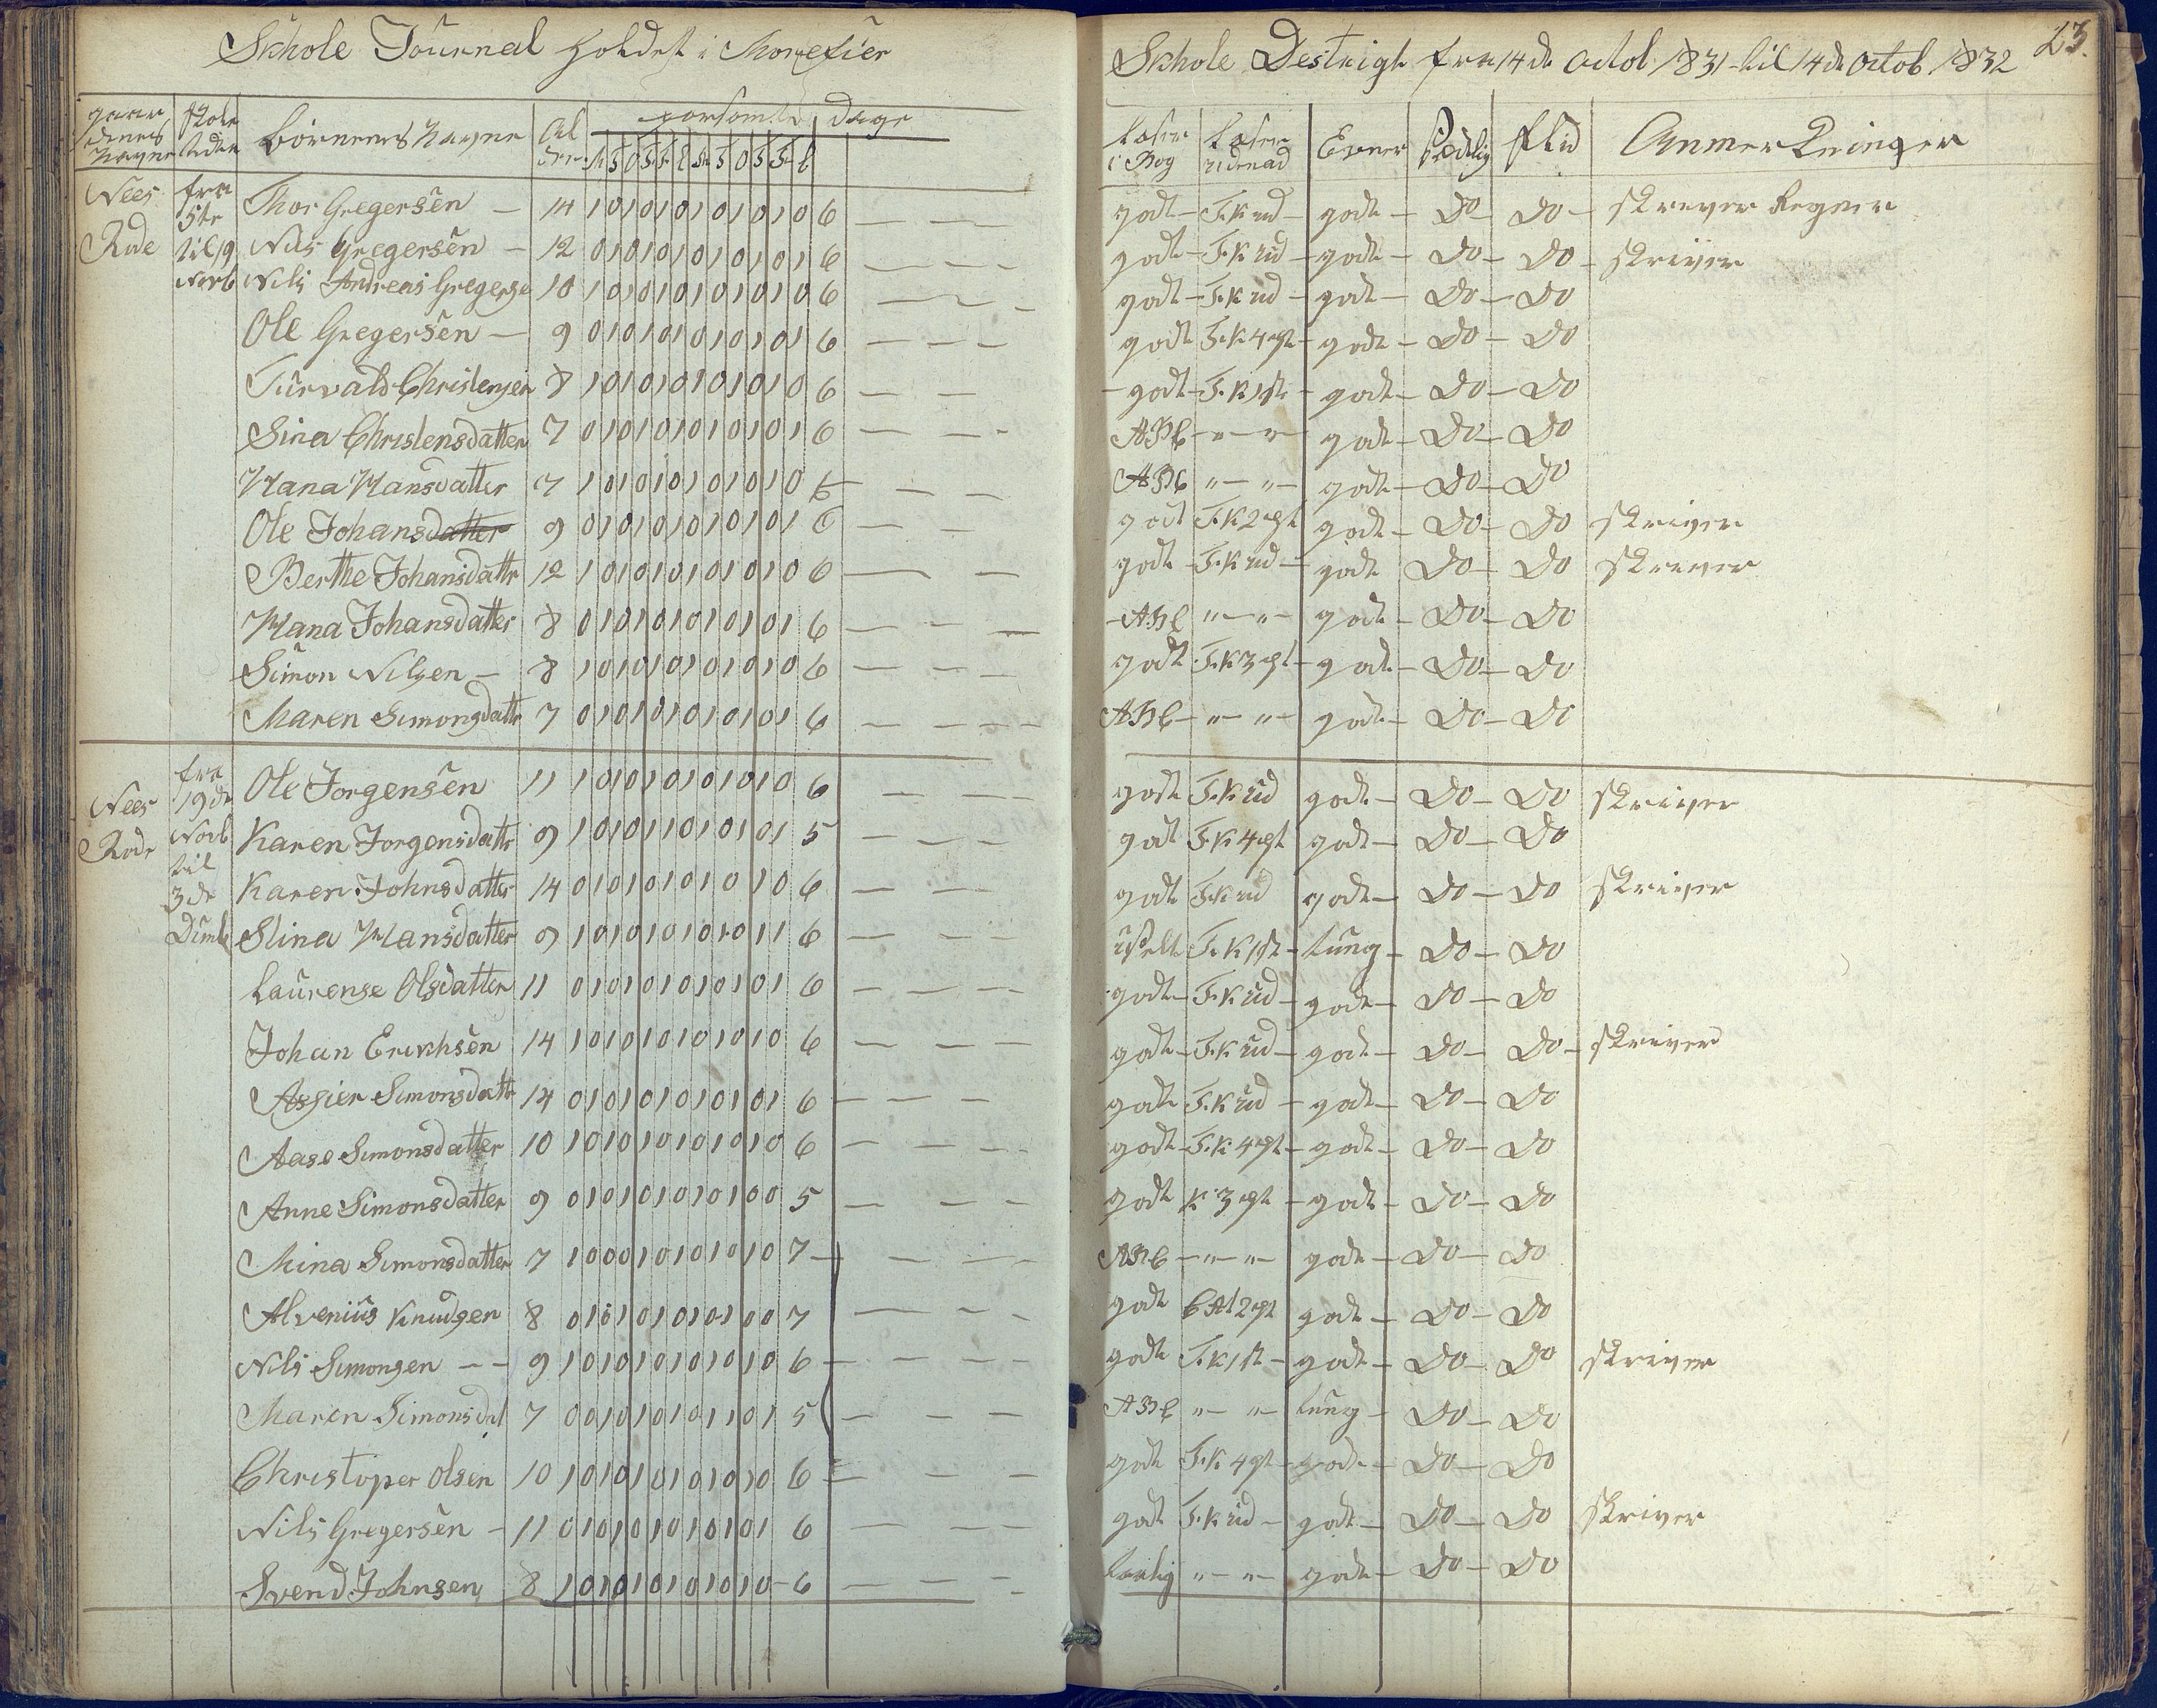 Skhole Journal holdet i Morefier Skhole Destrigt fra 14de Octob 1831 til 14de Octob 1832 23.
gaardenes Navne Skole tiden Børnenes Navne Alder forsømte dage Læser i Bog Læser udenad Evner Sædelig flid Anmerkninger
Nees Rode fra 5te til 19 Novb
Thor Gregersen — 14 1 0 1 0 1 0 1 0 1 0 1 0 6 godt T.K ud godt Do Do skriver Regner
Nils Gregersen — 12 0 1 0 1 0 1 0 1 0 1 0 1 6 godt T.K ud godt Do Do skriver
Nils Andreas Gregerse 10 1 0 1 0 1 0 1 0 1 0 1 0 6 godt T.K ud godt Do Do
Ole Gregersen — 9 0 1 0 1 0 1 0 1 0 1 0 1 6 godt T.K 4 pt godt Do Do
Turvald Christensen 8 1 0 1 0 1 0 1 0 1 0 1 0 6 godt T.K 1st godt Do Do
Sina Christensdatter 7 0 1 0 1 0 1 0 1 0 1 0 1 6 ABC " — " godt Do Do
Hana Hansdatter 7 1 0 1 0 1 0 1 0 1 0 1 0 6 ABC " — " godt Do Do
Ole Johansdatter 9 0 1 0 1 0 1 0 1 0 1 0 1 6 godt T.K 2 pt godt Do Do skriver
Berthe Johansdattr 12 1 0 1 0 1 0 1 0 1 0 1 0 6 godt T.K ud godt Do Do skriver
Hana Johansdatter 8 0 1 0 1 0 1 0 1 0 1 0 1 6 ABC " — " godt Do Do
Simon Nilsen — 8 1 0 1 0 1 0 1 0 1 0 1 0 6 godt T.K 3 pt godt Do Do
Maren Simonsdattr 7 0 1 0 1 0 1 0 1 0 1 0 1 6 ABC " — " godt Do Do
Nees Rode fra 19de Novb til 3de Dimb
Ole Jorgensen 11 1 0 1 0 1 0 1 0 1 0 1 0 6 godt T.K ud godt Do Do skriver
Karen Jorgensdattr 9 1 0 1 0 1 1 0 1 0 1 0 1 5 godt T.K 4 pt godt Do Do
Karen Johnsdatter 14 0 1 0 1 0 1 0 1 0 1 0 6 godt T.K ud godt Do Do skriver
Stina Hansdatter 9 1 0 1 0 1 0 1 0 1 0 1 1 6 uselt T.K 1st tung Do Do
Laurense Olsdatter 11 0 1 0 1 0 1 0 1 0 1 0 1 6 godt T.K ud godt Do Do
Johan Erikhsen 14 1 0 1 0 1 0 1 0 1 0 1 0 6 godt T.K ud godt Do Do skriver
Assier Simonsdattr 14 0 1 0 1 0 1 0 1 0 1 0 1 6 godt T.K ud godt Do Do
Aase Simonsdatter 10 1 0 1 0 1 0 1 0 1 0 1 0 6 godt T.K 4 pt godt Do Do
Anne Simonsdatter 9 0 1 0 1 0 1 0 1 0 1 0 0 5 godt K 3 pt godt Do Do
Mina Simonsdatter 7 1 0 0 0 1 0 1 0 1 0 1 0 7 ABC " — " godt Do Do
Alvenius Knudsen 8 0 1 0 1 0 1 0 1 0 1 0 0 7 godt C At 2 pt godt Do Do
Nils Simonsen — 9 1 0 1 0 1 0 1 0 1 0 1 0 6 godt T.K 1st godt Do Do skriver
Maren Simonsdat 7 0 0 1 0 1 0 1 0 1 1 0 1 5 ABC " — " tung Do Do
Christoper Olsen 10 1 0 1 0 1 0 1 0 1 0 1 0 6 godt T.K 4 pt godt Do Do
Nils Gregersen — 11 0 1 0 1 0 1 0 1 0 1 0 1 6 godt T.K ud godt Do Do skriver
Svend Johnsen 8 1 0 1 0 1 0 1 0 1 0 1 0 6 " — " godt Do Do